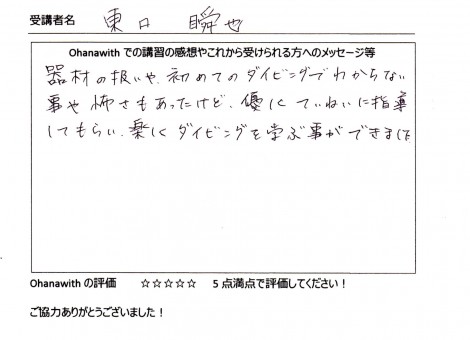 受講者名 東口 瞬也
Ohanawith での講習の感想やこれから受けられる方へのメッセージ等
器材の扱いや、初めてのダイビングでわからない
事や怖さもあったけど、優しくていねいに指導
してもらい、楽しくダイビングを学ぶ事ができました
Ohanawith の評価 ☆☆☆☆☆ 5 点満点で評価してください！
ご協力ありがとうございました！